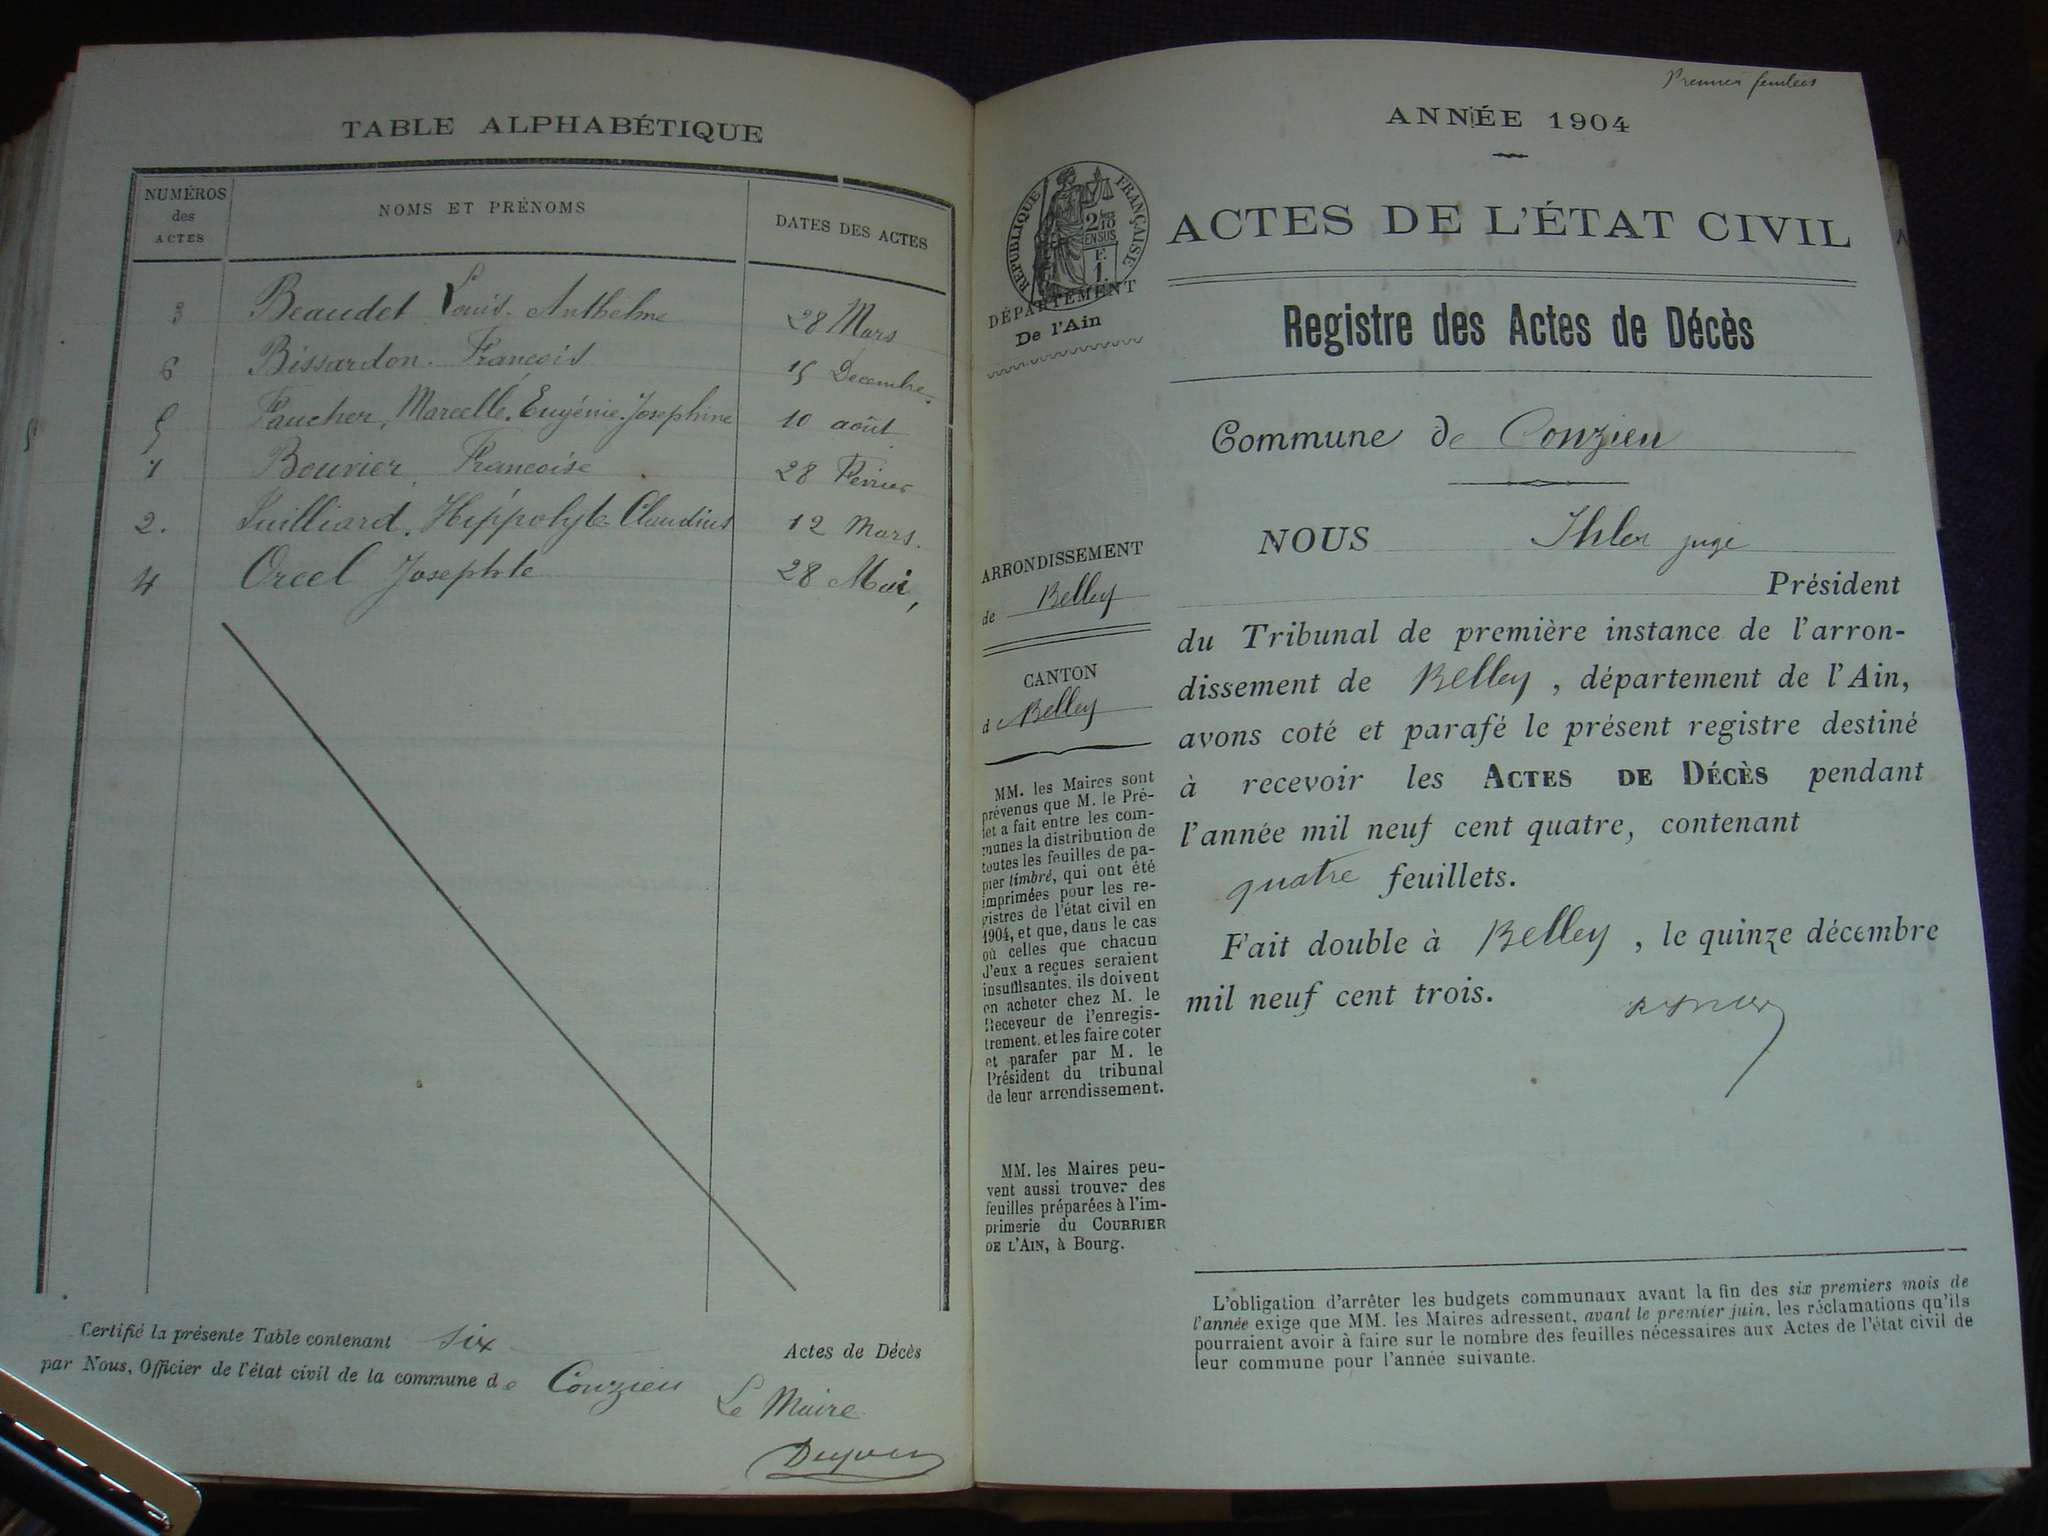 TABLE ALPHABÉTIQUE
NUMÉROS des ACTES
NOMS ET PRÉNOMS
DATES DES ACTES
3 Beaudet Louis-Anthelme 28 Mars
6 Bissardon François 15 Décembre
5 Faucher, Marcelle, Eugénie-Josephine 10 août
1 Bouvier Françoise 28 Février
2. Juilliard, Hippolyte-Claudius 12 Mars.
4 Orcel Josephte 28 Mai,
Certifié la présente Table contenant six Actes de Décès
par Nous, Officier de l'état civil de la commune de Conzieu
Le Maire
Premier
ANNÉE 1904
RÉPUBLIQUE FRANÇAISE
DÉPARTEMENT
De l'Ain
ARRONDISSEMENT
de Belley
CANTON
d Belley
MM. les Maires sont
prévenus que M. le Pré-
fet a fait entre les com-
munes la distribution de
toutes les feuilles de pa-
pier timbré, qui ont été
imprimées pour les re-
gistres de l'état civil en
1904, et que, dans le cas
où celles que chacun
d'eux a reçues seraient
insuffisantes, ils doivent
en acheter chez M. le
Receveur de l'enregis-
trement, et les faire coter
et parafer par M. le
Président du tribunal
de leur arrondissement.
MM. les Maires peu-
vent aussi trouver des
feuilles préparées à l'im-
primerie du COURRIER
DE L'AIN, à Bourg.
ACTES DE L'ÉTAT CIVIL
Registre des Actes de Décès
Commune de Conzieu
NOUS Ihler juge
Président
du Tribunal de première instance de l'arron-
dissement de Belley, département de l'Ain,
avons coté et parafé le présent registre destiné
à recevoir les ACTES DE DÉCÈS pendant
l'année mil neuf cent quatre, contenant
quatre feuillets.
Fait double à Belley, le quinze décembre
mil neuf cent trois.
L'obligation d'arrêter les budgets communaux avant la fin des six premiers mois de
l'année exige que MM. les Maires adressent, avant le premier juin, les réclamations qu'ils
pourraient avoir à faire sur le nombre des feuilles nécessaires aux Actes de l'état civil de
leur commune pour l'année suivante.